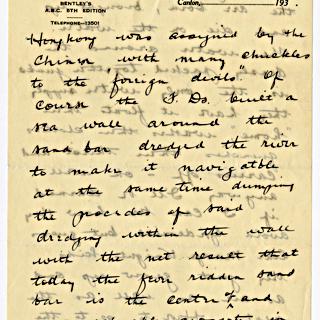 BENTLEY'S
A.B.C. 5TH EDITION
TELEPHONE—13501
Canton, 193 .
Hongkong was assigned by the
Chinese with many chuckles
to the "foreign devils". Of
course the F. Ds. built a
sea wall around the
sand bar dredged the river
to make it navigatble
at the same time dumping
the procedes of said
dridging within the wall
with the net result that
today the fever ridden sand
bar is the centre of, and